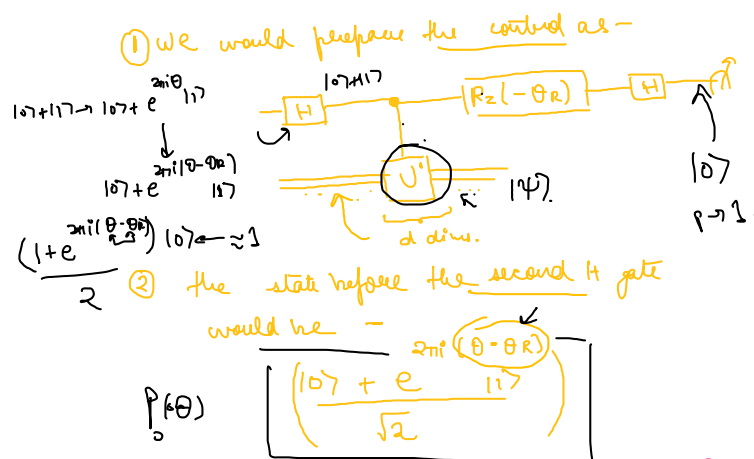 ① We would prepare the control as -
|0⟩+|1⟩ → |0⟩ + e^{2πiθ} |1⟩
H
|0⟩+|1⟩
Rz(-θR)
H
|0⟩ + e^{2πi(θ-θR)} |1⟩
U
|ψ⟩.
|0⟩
p → 1
d dims.
(1+e^{2πi(θ-θR)}) |0⟩ ← ≈ 1
2
② the state before the second H gate
would be -
(|0⟩ + e^{2πi(θ-θR)} |1⟩)
√2
P₀(θ)